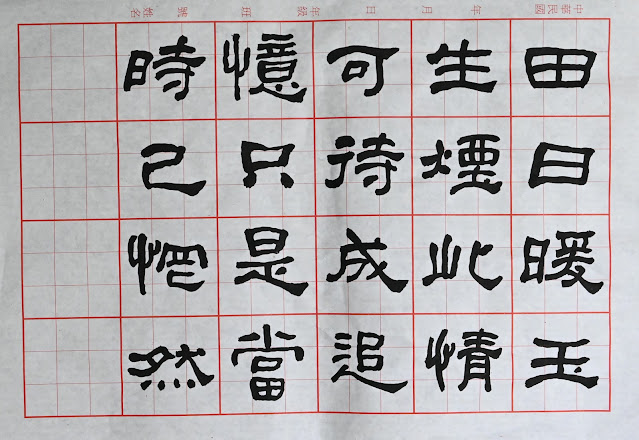 中華民國　年　月　日　年級　班　號　姓名
田日暖玉
生煙此情
可待成追
憶只是當
時已惘然